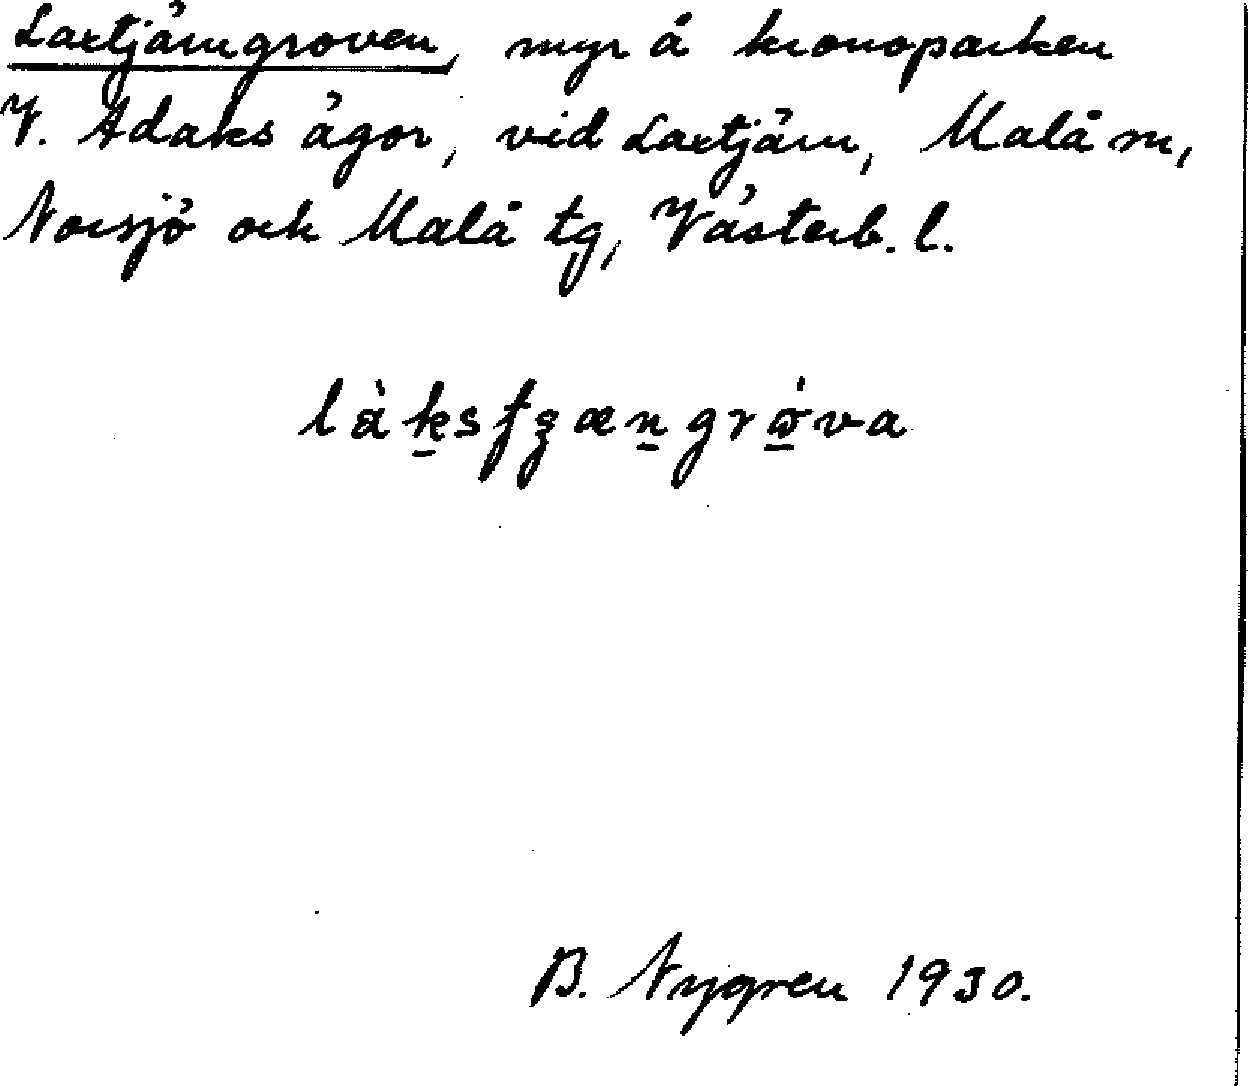 Laxtjärngroven, myr å kronoparken
V. Adaks ägor, vid Laxtjärn, Malå sn,
Norsjö och Malå tg, Västerb. l.
B. Nygren 1930.